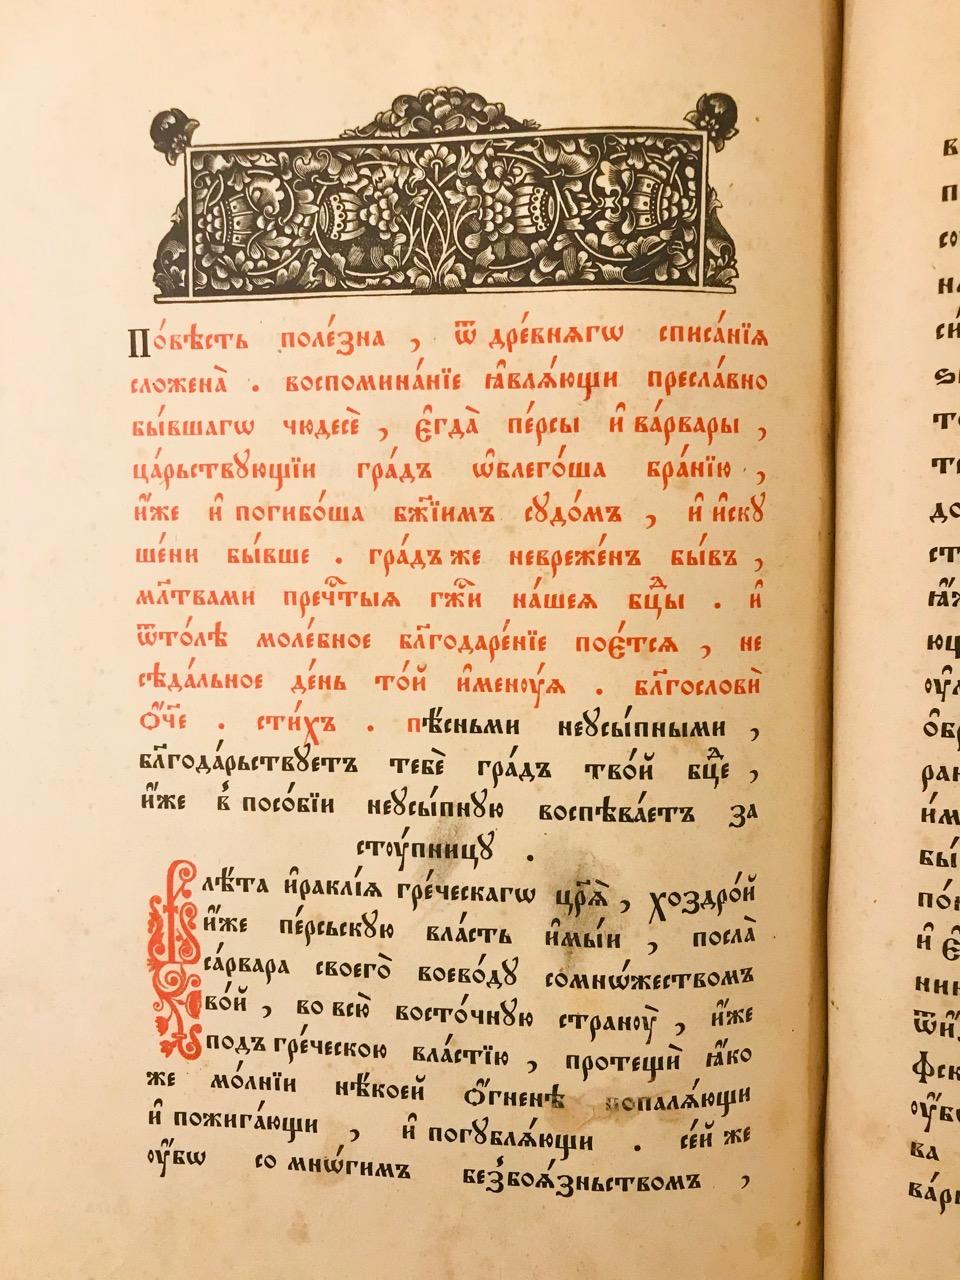 По́вѣсть поле́зна , ѿ дре́внѧгѡ списа́нїѧ
сложена̀ . воспомина́нїе ꙗ҆влѧ́ющи пресла́вно
бы́вшагѡ чюдесѐ , є҆гда̀ пе́рсы и҆ ва́рвары ,
ца́рьствꙋющїи гра́дъ ѡ҆блего́ша бра́нїю ,
и҆́же и҆ погибо́ша бж҃їимъ сꙋдо́мъ , и҆ и҆скꙋ
ше́ни бы́вше . гра́дъ же невреже́нъ бы́въ ,
мл҃твами пречⷭ҇тыѧ гжⷭ҇и на́шеѧ бцⷣы . и҆
ѿто́лѣ моле́бное бл҃годаре́нїе поє́тсѧ , не
сѣда́льное де́нь то́й и҆меноу́ѧ . бл҃гословѝ
ѻ҆́ч҃е . сти́хъ . пѣ́сньми неꙋсы́пными ,
бл҃года́рьствꙋетъ тебѐ гра́дъ тво́й бцⷣе ,
и҆́же в̾ посо́бїи неꙋсы́пнꙋю воспѣва́етъ за
стоу́пницꙋ .
Влѣ́та и҆ракли́ѧ гре́ческагѡ цр҃ѧ̀ , хоздро́й
и҆́же пе́рсьскꙋю вла́сть и҆мы́и , посла̀
са́рвара своего̀ воево́дꙋ сомнѡ́жествомъ
во́й , во всю̀ восто́чнꙋю страноу̀ , и҆́же
подъ гре́ческою вла́стїю , протещѝ ꙗ҆́ко
же мо́лнїи нѣ́коей ѻ҆́гненѣ попалѧ́ющи
и҆ пожига́ющи , и҆ погꙋблѧ́ющи . се́й же
оу҆́бѡ со мнѡ́гимъ без̾боѧ́зньствомъ ,